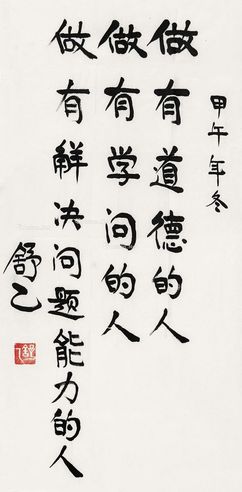 甲午年冬
做有道德的人
做有学问的人
做有解决问题能力的人
舒乙